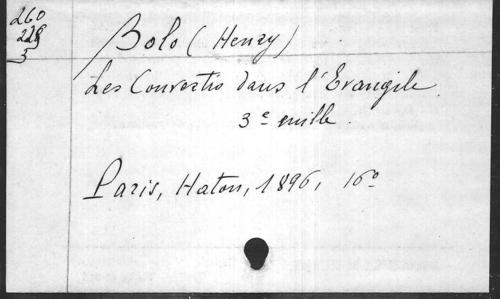 260
228
3
Bolo (Henry)
Les Convertis dans l'Evangile.
3e mille.
Paris, Haton, 1896, 16o